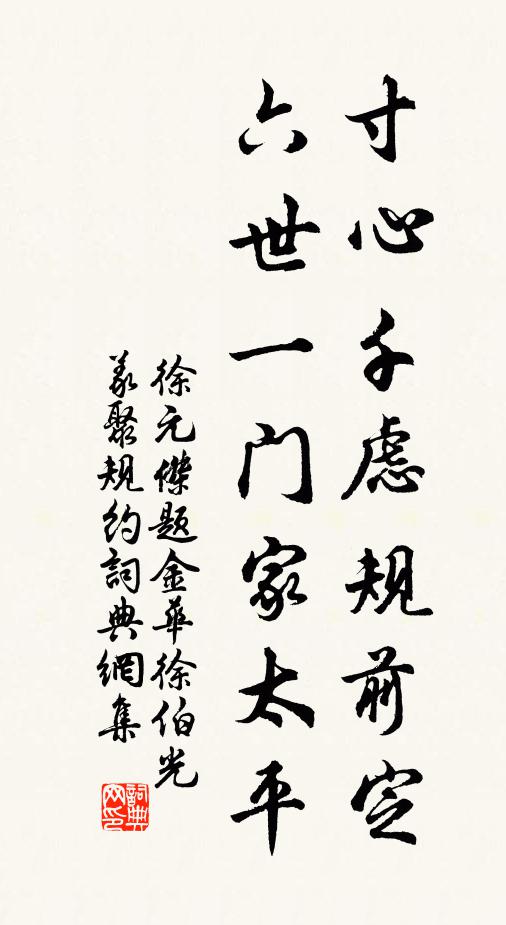 寸心千慮規前定
六世一门家太平
徐元傑题金華徐伯光
义聚規约詞典網集
詞典网印